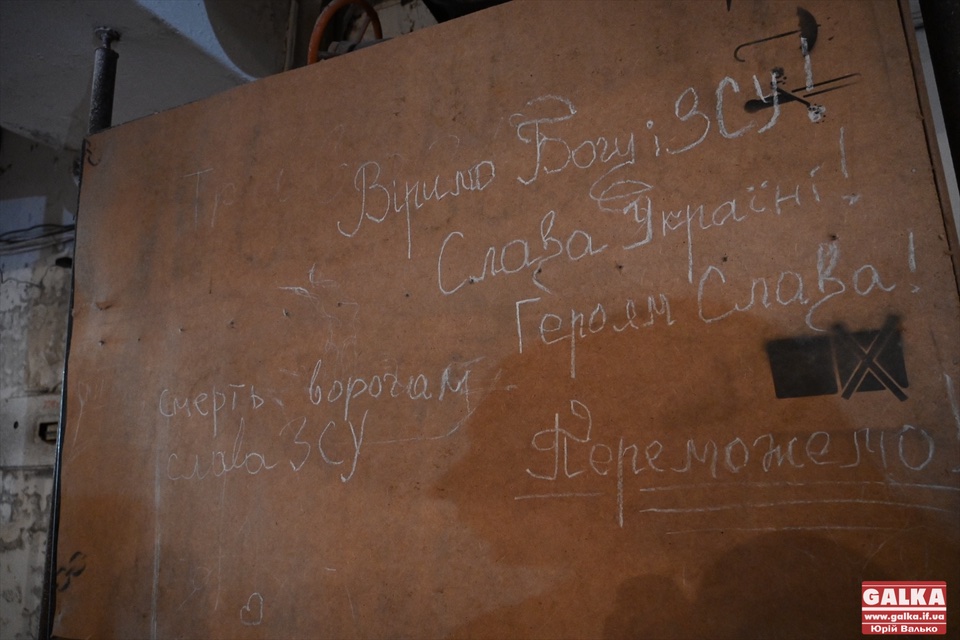 Віримо Богу і ЗСУ!
Слава Україні!
Героям Слава!
смерть ворогам
слава ЗСУ
Переможемо
GALKA
www.galka.if.ua
Юрій Валько